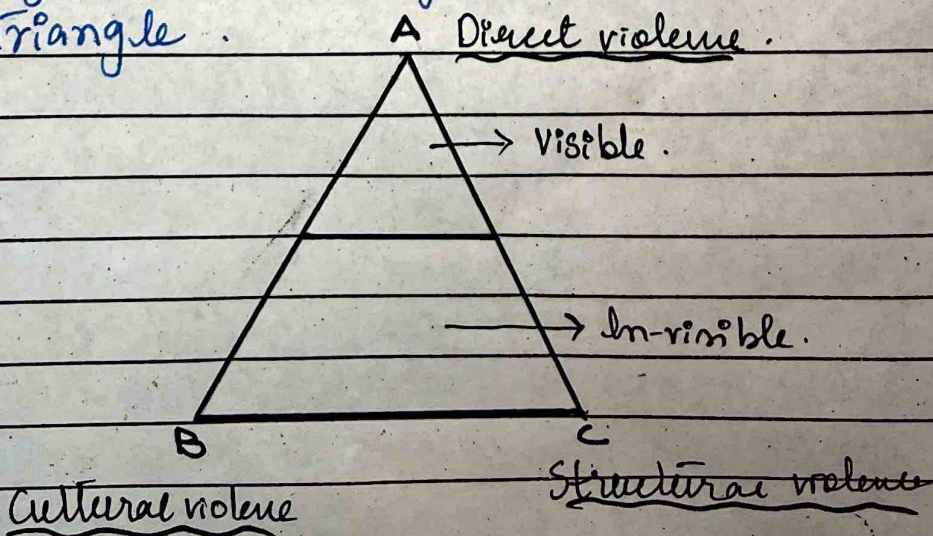 Triangle .
A Direct violence .
→ Visible .
→ In-visible .
B
C
Structural violence
Cultural violence